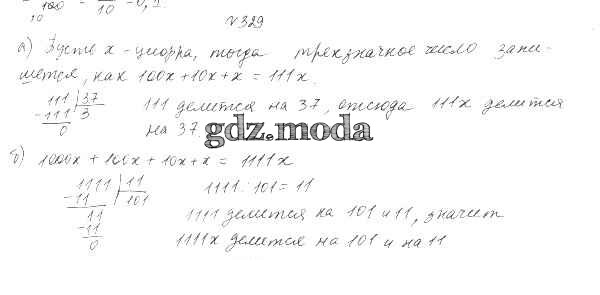 100 10
10
№ 329
а) Пусть x - цифра, тогда трехзначное число запи-
шется, как 100x + 10x + x = 111x.
111 | 37
- 111 | 3
0
111 делится на 37, отсюда 111x делится
на 37.
gdz.moda
б) 1000x + 100x + 10x + x = 1111x
1111 | 11
- 11 | 101
11
- 11
0
1111 : 101 = 11
1111 делится на 101 и 11, значит
1111x делится на 101 и на 11